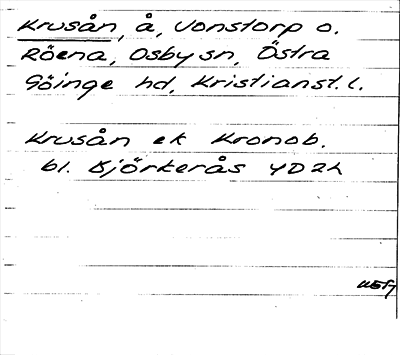 Krusån, å, Jonstorp o.
Röena, Osby sn, Östra
Göinge hd, Kristianst. l.
Krusån ek Kronob.
bl. Björkerås 4D2h